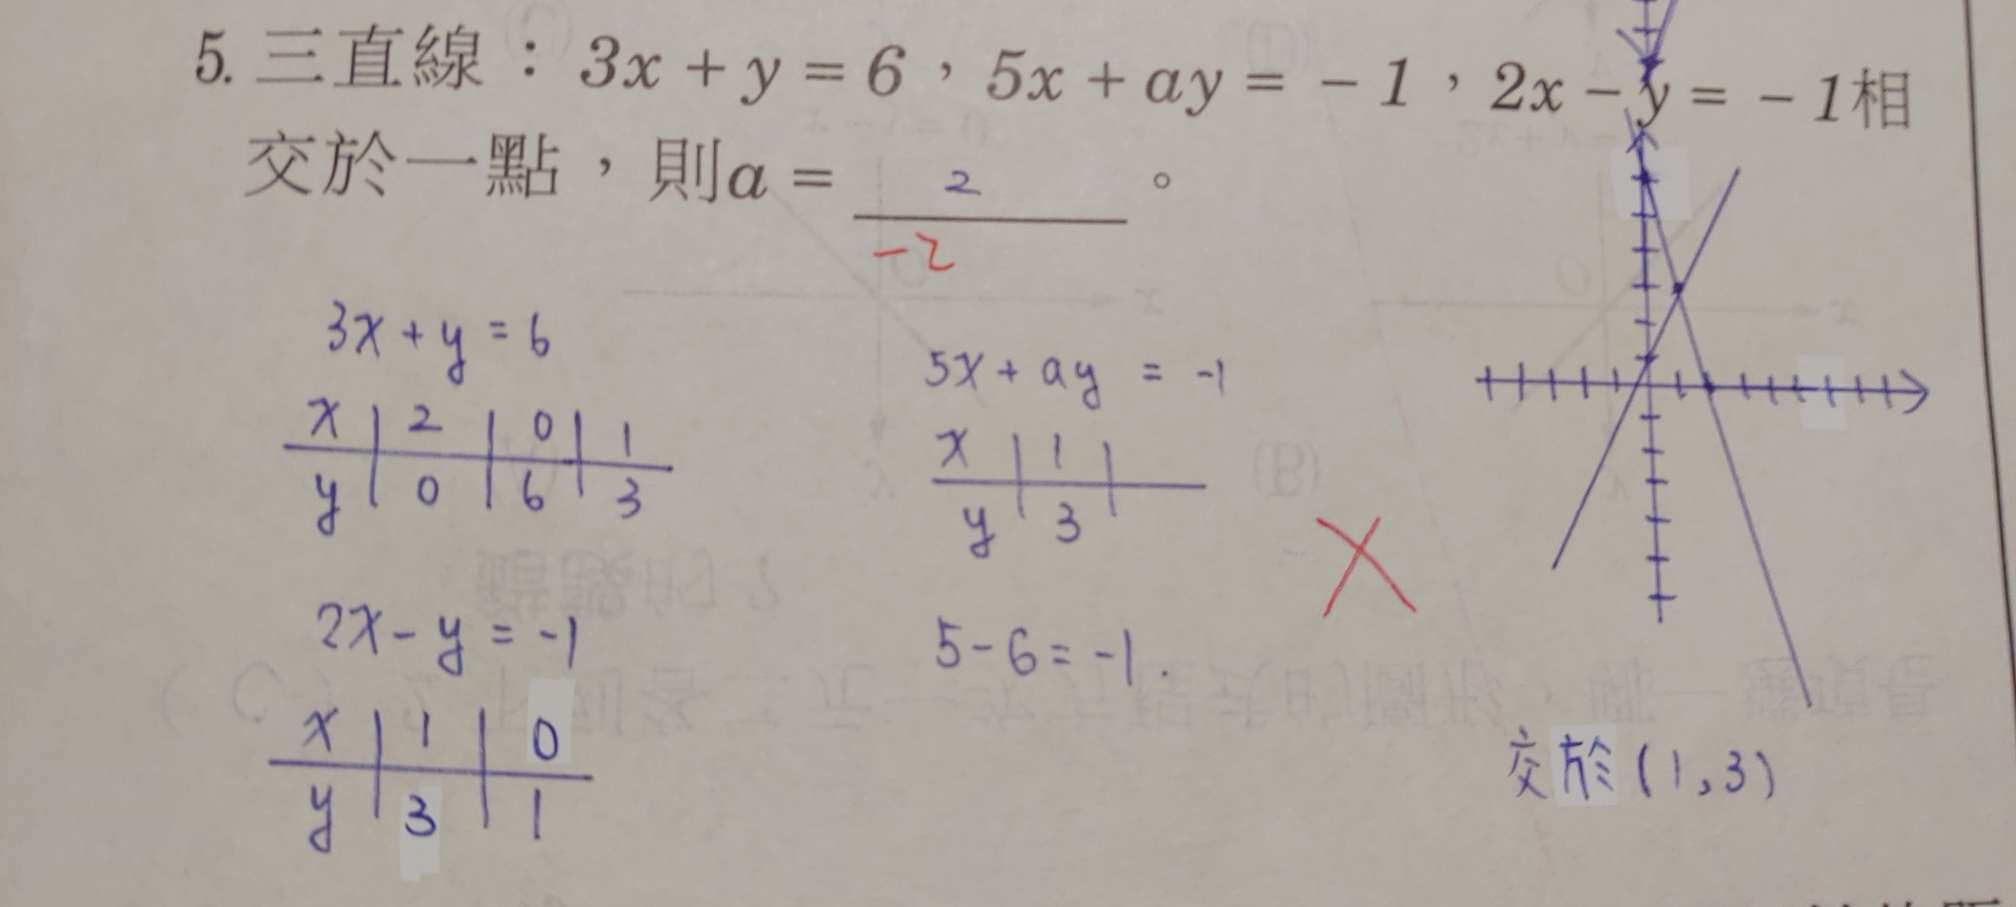 5. 三直線：3x + y = 6，5x + ay = －1，2x － y = －1相
交於一點，則a = 2 。
-2
3x + y = 6
x | 2 | 0 | 1
y | 0 | 6 | 3
5x + ay = -1
x | 1 |
y | 3 |
2x - y = -1
x | 1 | 0
y | 3 | 1
5 - 6 = -1.
交於(1,3)